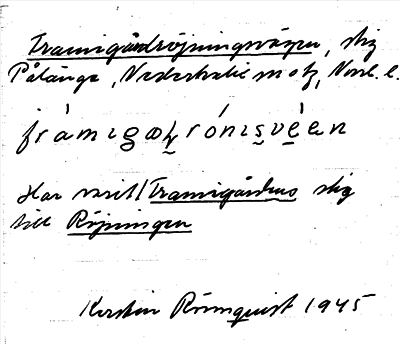 Framigårdröjningsvägen, stig
Pålänge, Nederkalix
frámıgaḷrónıṣvẹ̀en
Har varit Framigårdens stig
till Röjningen
Kerstin Rönnquist 1945